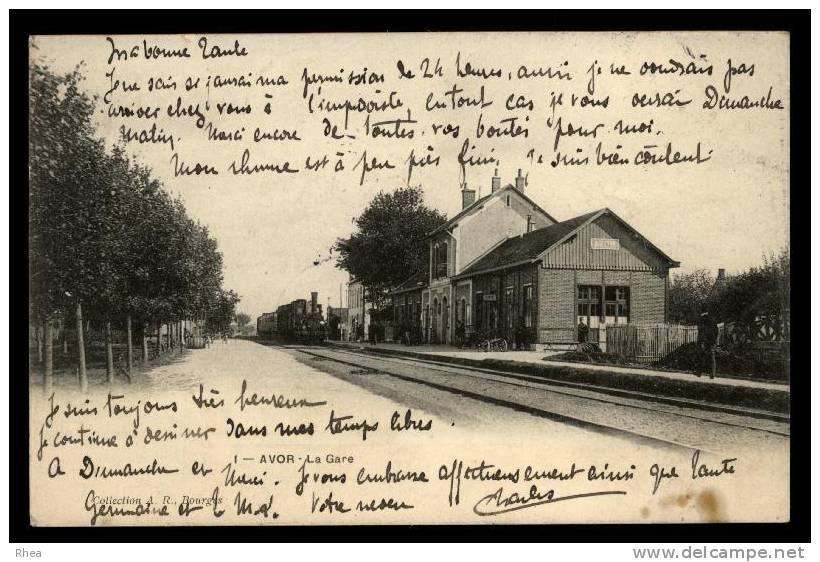 Ma bonne Tante
Je ne sais si j'aurai ma permission de 24 heures, aussi je ne voudrais pas
arriver chez vous à l'improviste, en tout cas je vous verrai Dimanche
Matin, Merci encore de toutes vos bontés pour moi.
Mon rhume est à peu près fini, Je suis bien content
Je suis toujours très heureux
Je continue à dessiner dans mes temps libres.
1 — AVOR - La Gare
A Dimanche et Merci. Je vous embrasse affectueusement ainsi que Tante
Collection A. R., Bourges
Germaine et le Votre neveu Charles
Rhea
www.delcampe.net